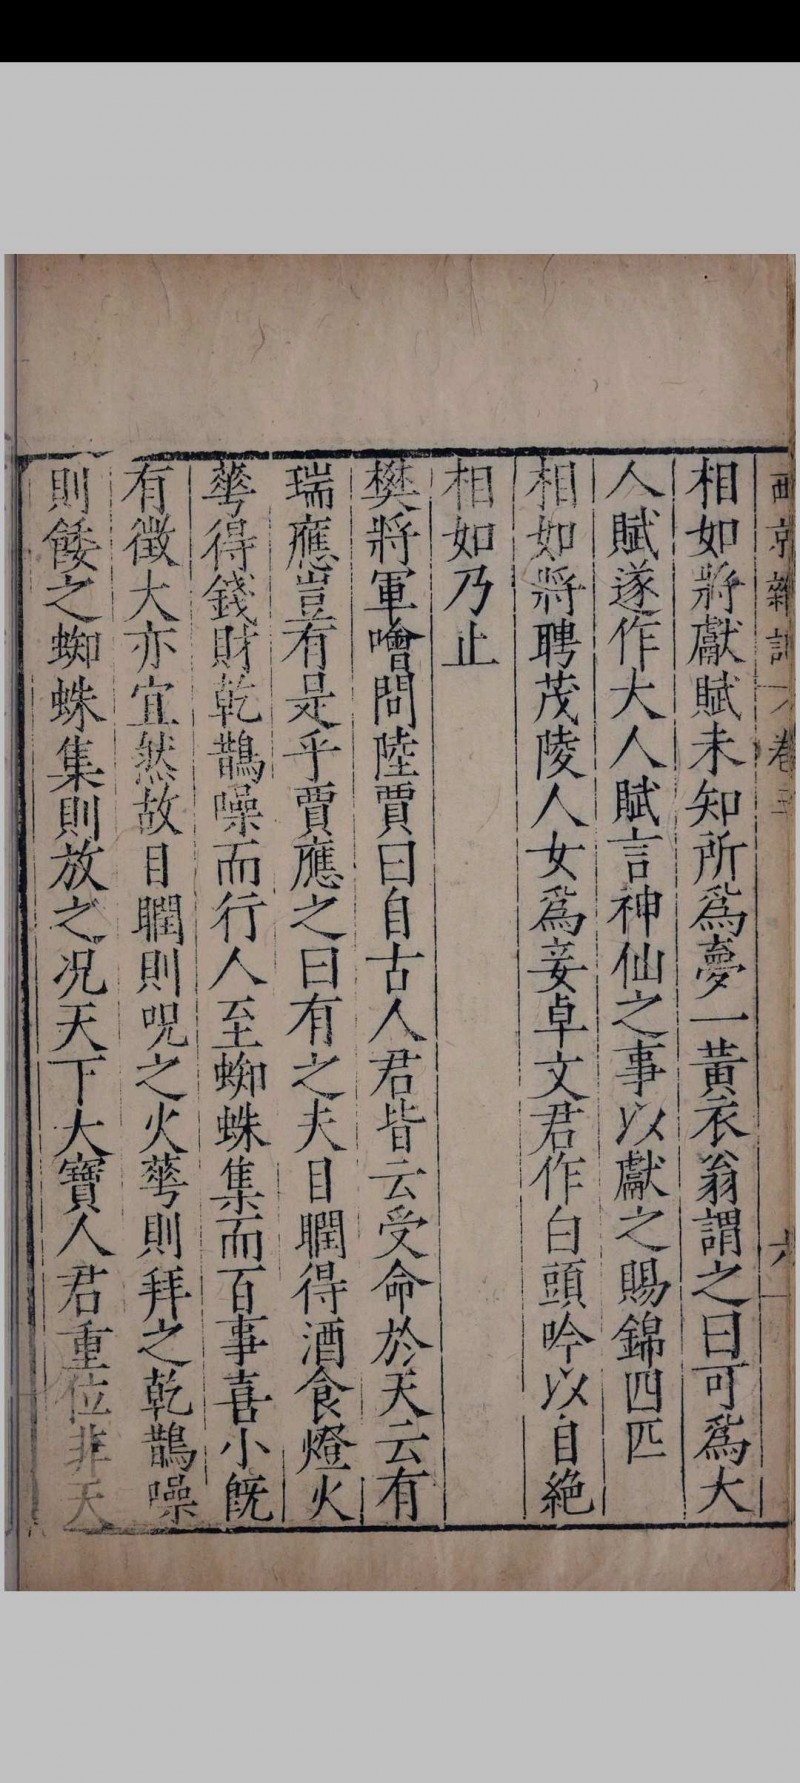 西京雜記 卷三 六
相如將獻賦未知所爲夢一黃衣翁謂之曰可爲大
人賦遂作大人賦言神仙之事以獻之賜錦四匹
相如將聘茂陵人女爲妾卓文君作白頭吟以自絶
相如乃止
樊將軍噲問陸賈曰自古人君皆云受命於天云有
瑞應豈有是乎賈應之曰有之夫目瞤得酒食燈火
蕚得錢財乾鵲噪而行人至蜘蛛集而百事喜小旣
有徵大亦宜然故目瞤則呪之火蕚則拜之乾鵲噪
則餧之蜘蛛集則放之况天下大寶人君重位非天